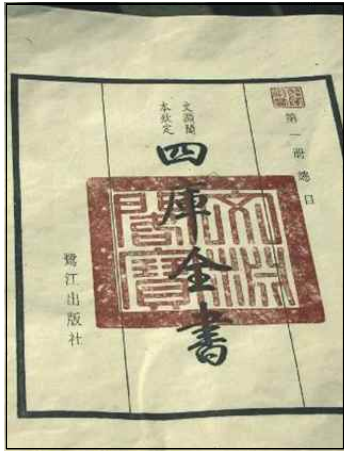 第一册總目
文淵閣
本欽定
四庫全書
文淵閣寶
鹭江出版社